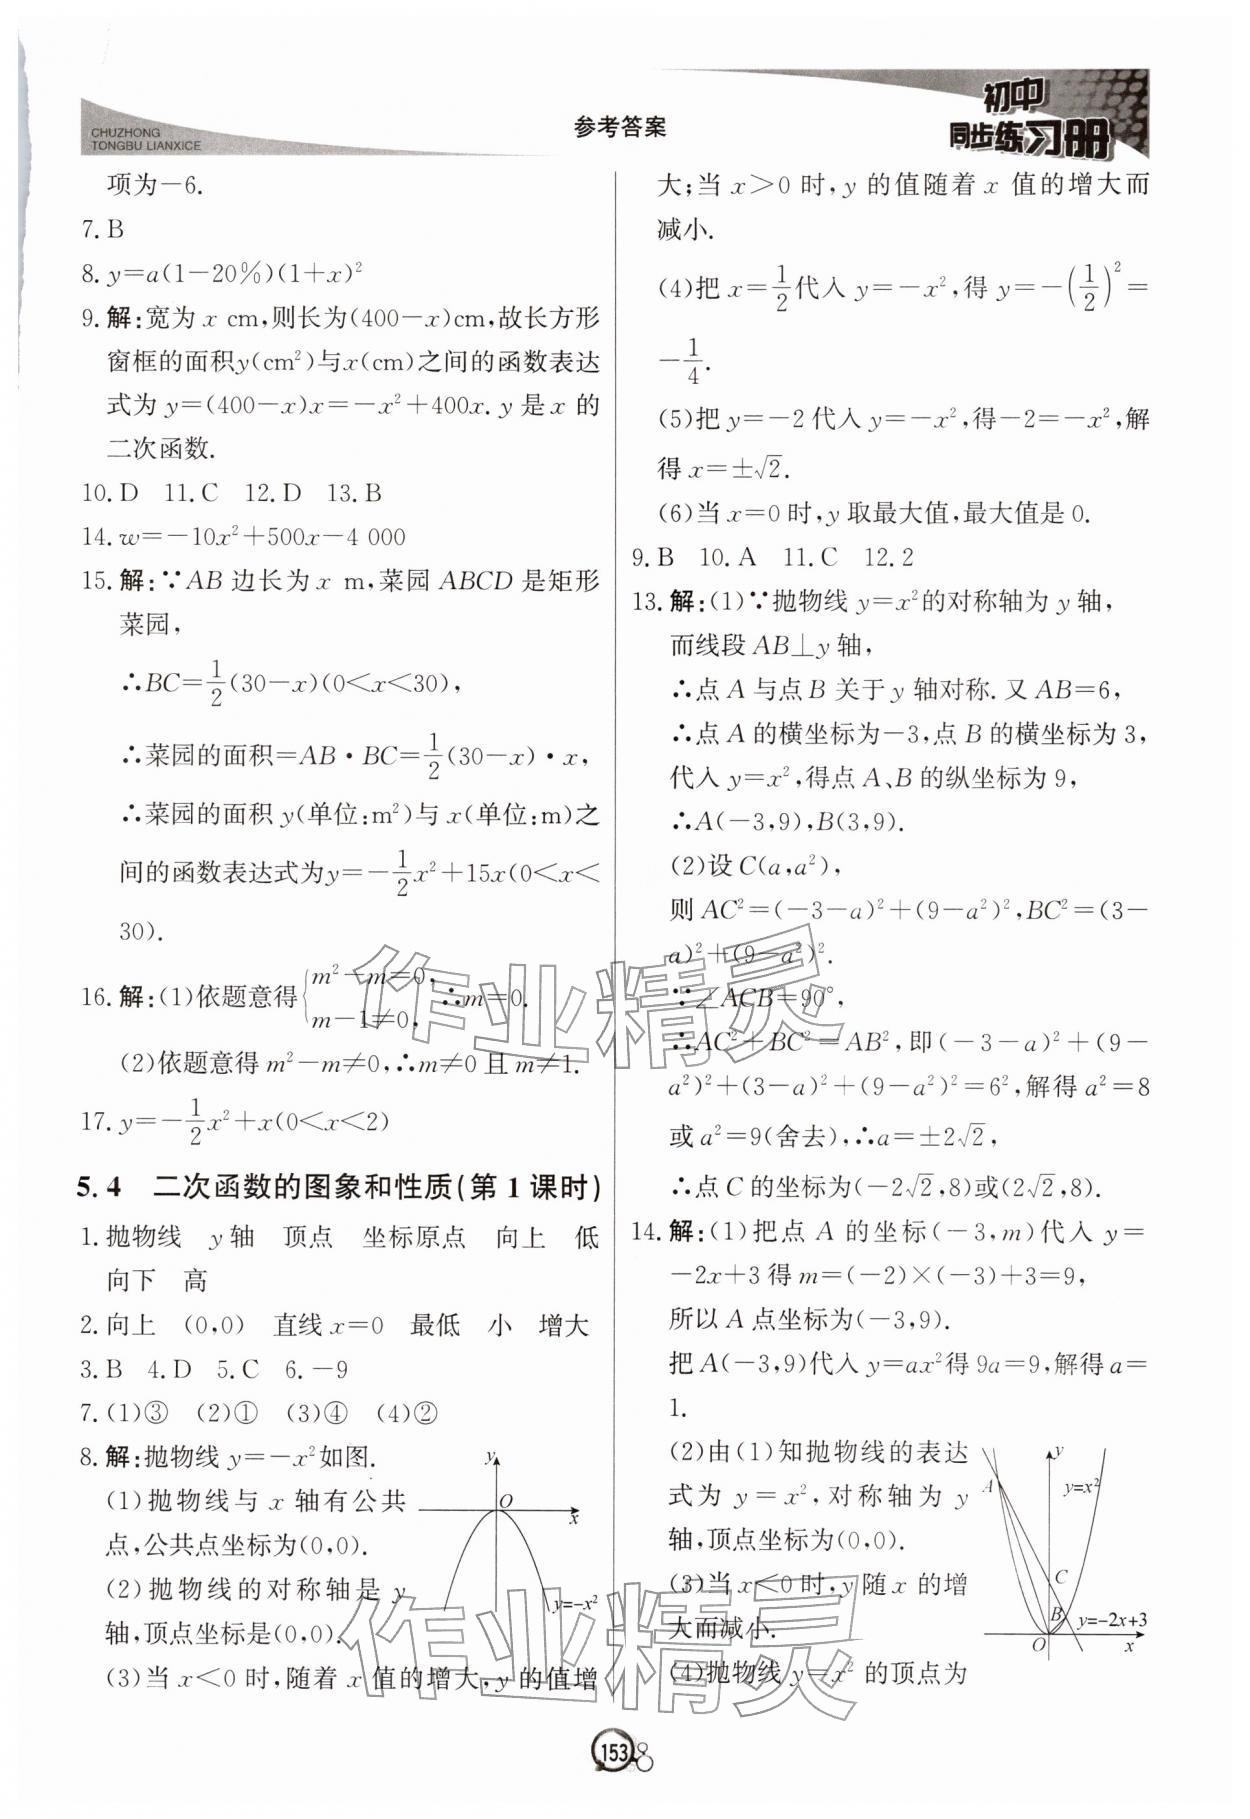 CHUZHONG
TONGBU LIANXICE
参考答案
初中
同步练习册
项为－6.
7. B
8. y=a(1－20%)(1+x)²
9. 解:宽为 x cm,则长为(400－x)cm,故长方形
窗框的面积y(cm²)与x(cm)之间的函数表达
式为 y=(400－x)x=－x²+400x. y 是 x 的
二次函数.
10. D 11. C 12. D 13. B
14. w=－10x²+500x－4 000
15. 解:∵AB 边长为 x m,菜园 ABCD 是矩形
菜园,
∴BC=1/2(30－x)(0<x<30),
∴菜园的面积=AB·BC=1/2(30－x)·x,
∴菜园的面积 y(单位:m²)与 x(单位:m)之
间的函数表达式为y=－1/2x²+15x(0<x<
30).
16. 解:(1)依题意得{m²－m=0, m－1≠0,∴m=0.
(2)依题意得 m²－m≠0,∴m≠0 且 m≠1.
17. y=－1/2x²+x(0<x<2)
5.4 二次函数的图象和性质(第1课时)
1. 抛物线 y 轴 顶点 坐标原点 向上 低
向下 高
2. 向上 (0,0) 直线 x=0 最低 小 增大
3. B 4. D 5. C 6. －9
7. (1)③ (2)① (3)④ (4)②
8. 解:抛物线 y=－x²如图.
(1)抛物线与 x 轴有公共
点,公共点坐标为(0,0).
(2)抛物线的对称轴是 y
轴,顶点坐标是(0,0).
y
O
x
y=－x²
(3)当 x<0 时,随着 x 值的增大,y 的值增
大;当 x>0 时,y 的值随着 x 值的增大而
减小.
(4)把 x=1/2代入 y=－x²,得 y=－(1/2)²=
－1/4.
(5)把 y=－2代入 y=－x²,得－2=－x²,解
得 x=±√2.
(6)当 x=0 时,y 取最大值,最大值是 0.
9. B 10. A 11. C 12. 2
13. 解:(1)∵抛物线 y=x²的对称轴为 y 轴,
而线段 AB⊥y 轴,
∴点 A 与点 B 关于 y 轴对称. 又 AB=6,
∴点 A 的横坐标为－3,点 B 的横坐标为 3,
代入 y=x²,得点 A、B 的纵坐标为 9,
∴A(－3,9),B(3,9).
(2)设 C(a,a²),
则 AC²=(－3－a)²+(9－a²)²,BC²=(3－
a)²+(9－a²)².
∵∠ACB=90°,
∴AC²+BC²=AB²,即(－3－a)²+(9－
a²)²+(3－a)²+(9－a²)²=6²,解得 a²=8
或 a²=9(舍去),∴a=±2√2,
∴点 C 的坐标为(－2√2,8)或(2√2,8).
14. 解:(1)把点 A 的坐标(－3,m)代入 y=
－2x+3 得 m=(－2)×(－3)+3=9,
所以 A 点坐标为(－3,9).
把 A(－3,9)代入 y=ax²得 9a=9,解得 a=
1.
(2)由(1)知抛物线的表达
式为 y=x²,对称轴为 y
轴,顶点坐标为(0,0).
(3)当 x<0 时,y 随 x 的增
大而减小.
(4)抛物线 y=x² 的顶点为
y
A
y=x²
C
B
y=－2x+3
O
x
作业精灵
作业精灵
153